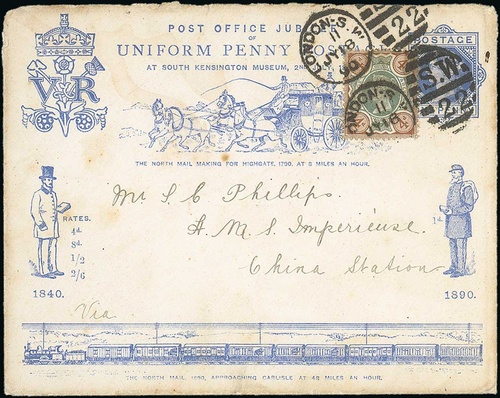 POST OFFICE JUBILEE
OF
UNIFORM PENNY
AT SOUTH KENSINGTON MUSEUM,
V R
LONDON·S.W.
11
90
22
S.W.
POSTAGE
4d 4d
LONDON·S.
11
THE NORTH MAIL MAKING FOR HIGHGATE, 1790, AT 8 MILES AN HOUR.
Mr S C Phillips.
H. M. S. Imperieuse.
China Station
Via
RATES.
4d
8d
1/2
2/6
1d
1840.
1890.
THE NORTH MAIL, 1890, APPROACHING CARLISLE AT 48 MILES AN HOUR.